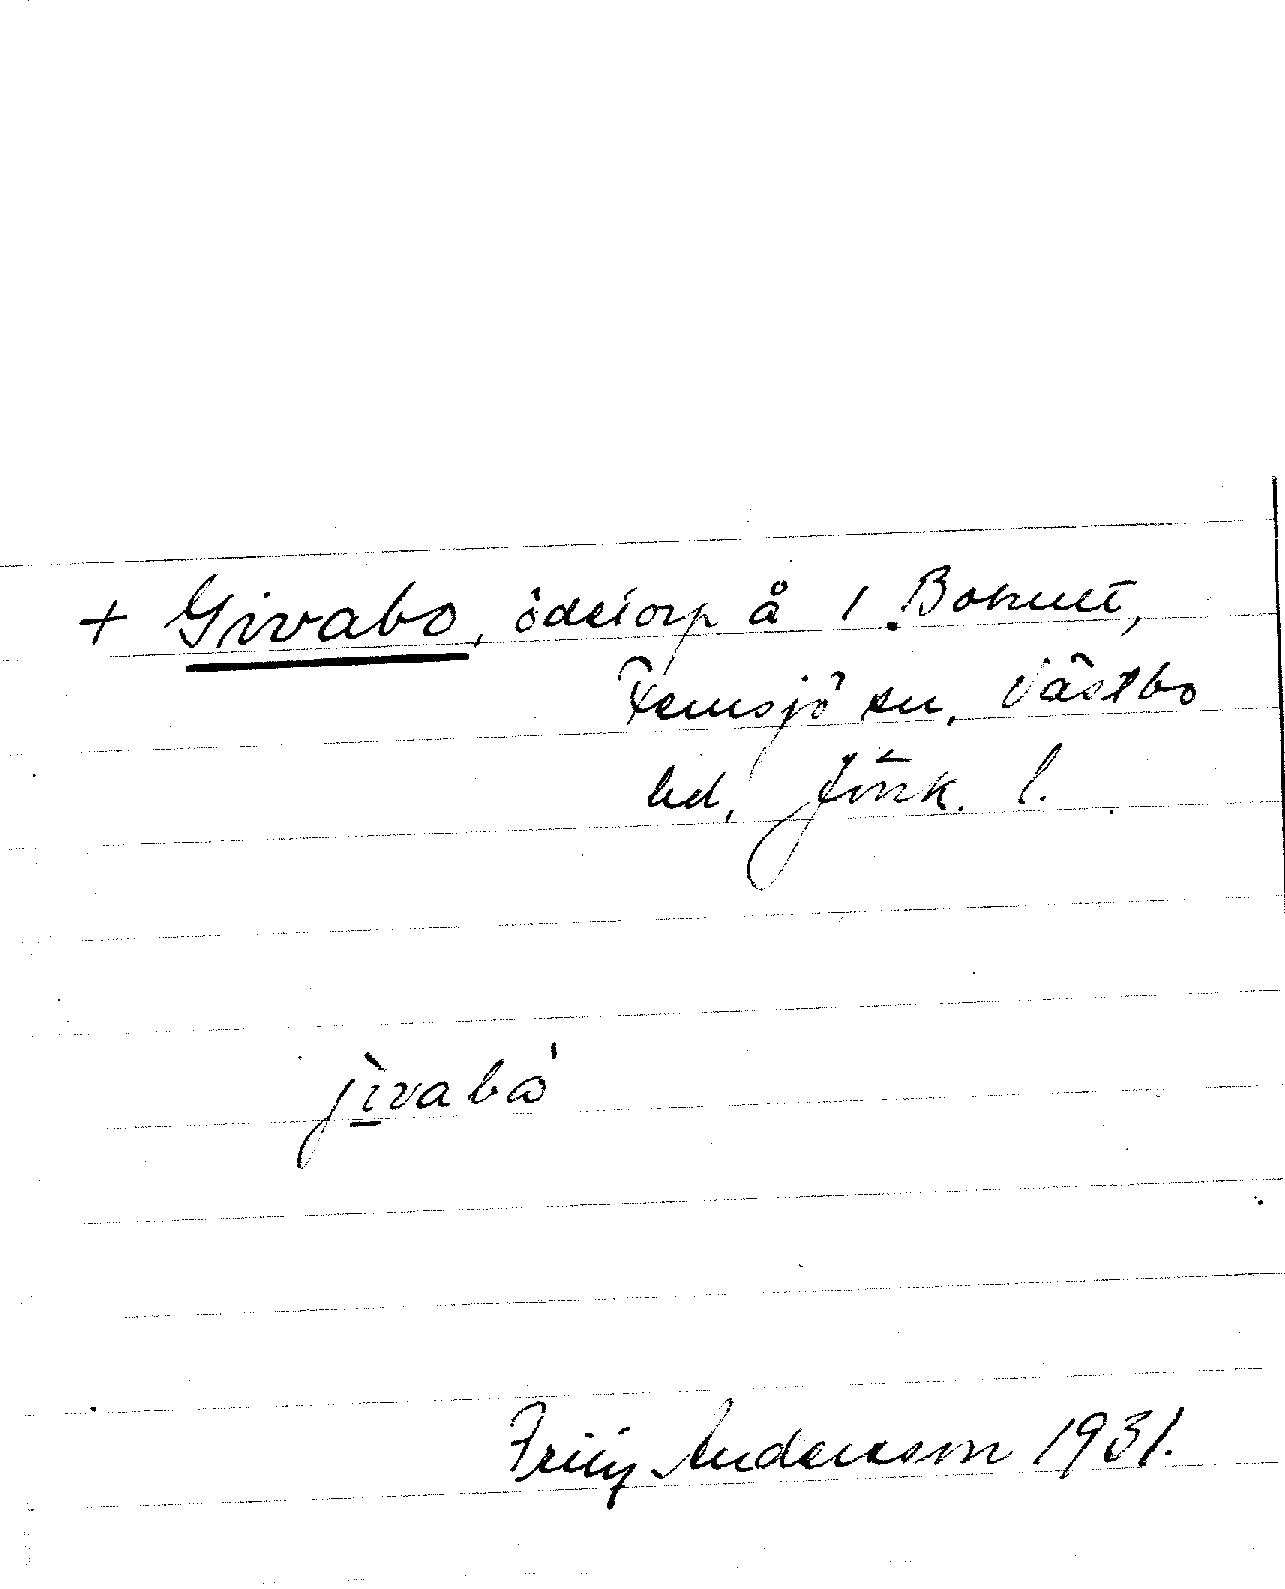 + Givabo, ödetorp å 1 Bohult,
Femsjö sn, Västbo
hd, Jönk. l.
jìvabó
Fritz Andersson 1931.